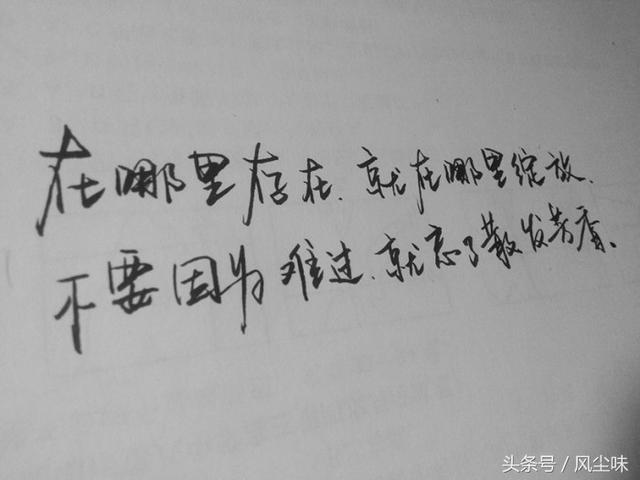 在哪里存在、就在哪里绽放、
不要因为难过、就忘了散发芳香、
头条号/风尘味